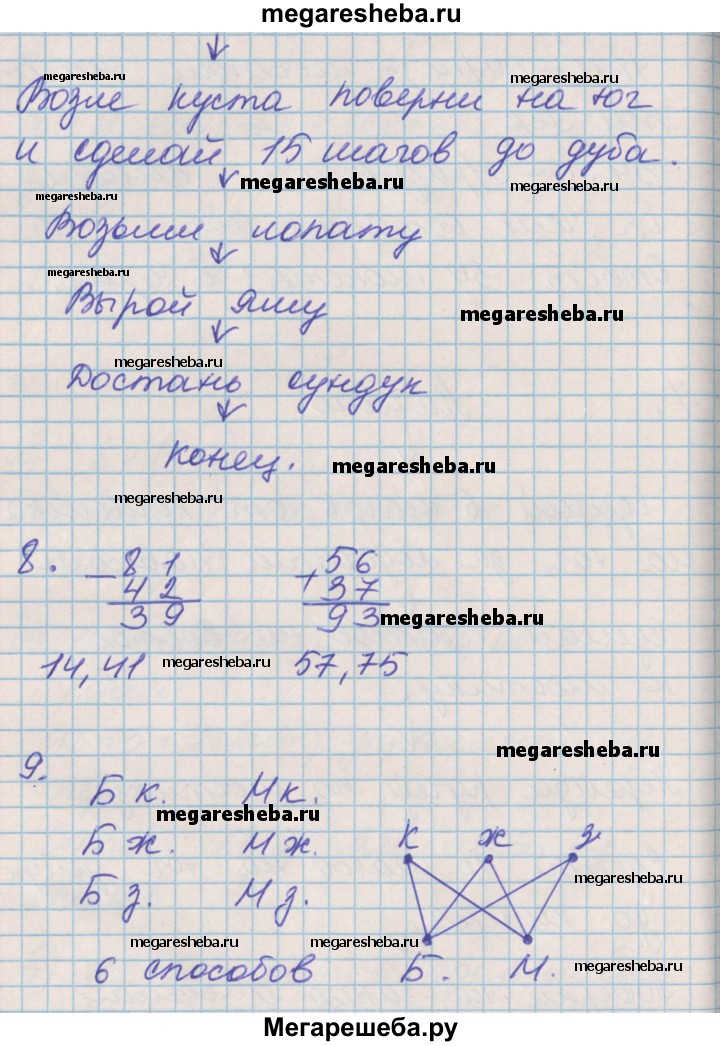 megaresheba.ru
megaresheba.ru megaresheba.ru
Возле куста поверни на юг
и сделай 15 шагов до дуба.
megaresheba.ru megaresheba.ru megaresheba.ru
Возьми лопату
megaresheba.ru
Вырой яму
megaresheba.ru
megaresheba.ru
Достань сундук
конец.
megaresheba.ru
megaresheba.ru
8. - 81 + 56
42 37
39 93
megaresheba.ru
14, 41 megaresheba.ru 57, 75
megaresheba.ru
9.
Б к. М к.
megaresheba.ru
Б ж. М ж. К ж з
megaresheba.ru
Б з. М з.
megaresheba.ru megaresheba.ru
6 способов Б. М. megaresheba.ru
Мегарешеба.ру